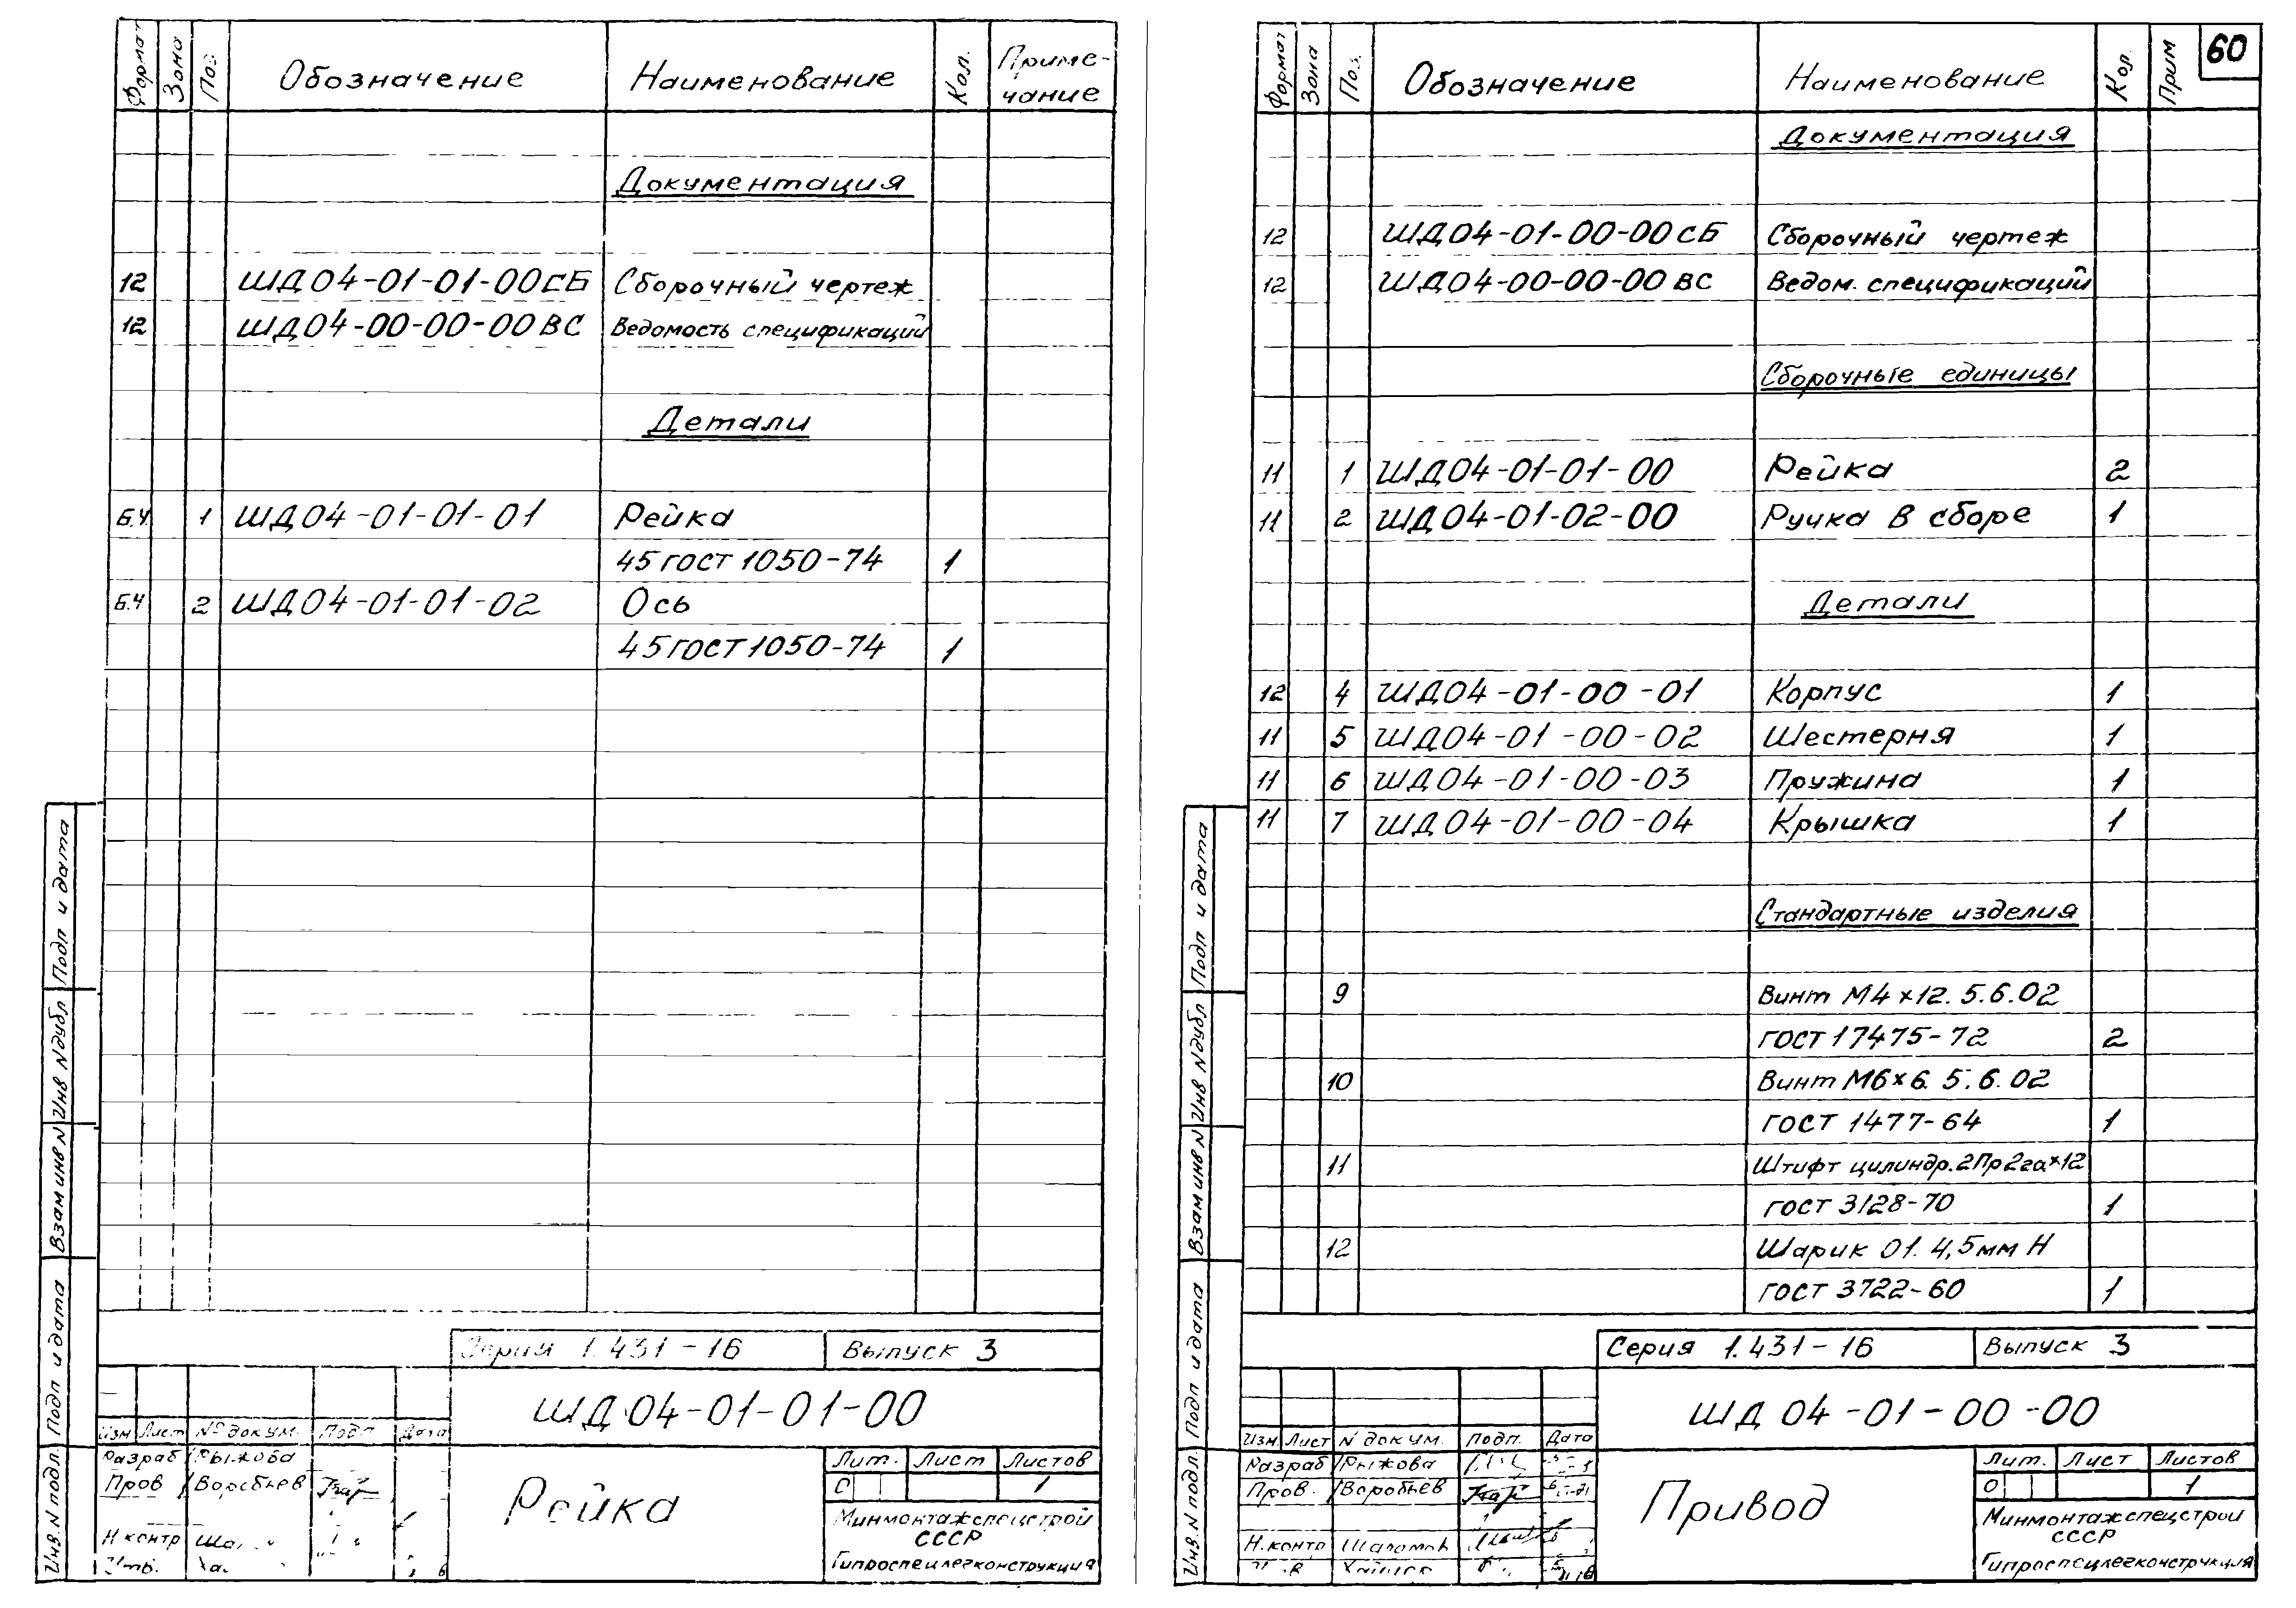 Формат Зона Поз Обозначение Наименование Кол. Приме-
чание
Документация
12 ШД04-01-01-00СБ Сборочный чертеж
12 ШД04-00-00-00ВС Ведомость спецификаций
Детали
Б.Ч 1 ШД04-01-01-01 Рейка
45 ГОСТ 1050-74 1
Б.Ч 2 ШД04-01-01-02 Ось
45 ГОСТ 1050-74 1
Подп и дата
Инв N дубл
Взам инв N
Подп и дата
Инв. N подл.
Серия 1.431-16 Выпуск 3
ШД 04-01-01-00
Изм Лист № докум. Подп Дата
Разраб Рыжова
Пров Воробьев
Н контр
Утв.
Рейка
Лит. Лист Листов
О 1
Минмонтажспецстрой
СССР
Гипроспецлегконструкция
60
Формат Зона Поз. Обозначение Наименование Кол. Прим
Документация
12 ШД04-01-00-00СБ Сборочный чертеж
12 ШД04-00-00-00ВС Ведом. спецификаций
Сборочные единицы
11 1 ШД04-01-01-00 Рейка 2
11 2 ШД04-01-02-00 Ручка в сборе 1
Детали
12 4 ШД04-01-00-01 Корпус 1
11 5 ШД04-01-00-02 Шестерня 1
11 6 ШД04-01-00-03 Пружина 1
11 7 ШД04-01-00-04 Крышка 1
Стандартные изделия
9 Винт М4×12.5.6.02
ГОСТ 17475-72 2
10 Винт М6×6.5.6.02
ГОСТ 1477-64 1
11 Штифт цилиндр.2Пр2га×12
ГОСТ 3128-70 1
12 Шарик 01.4,5мм Н
ГОСТ 3722-60 1
Подп и дата
Инв N дубл
Взам инв N
Подп и дата
Инв. N подл.
Серия 1.431-16 Выпуск 3
ШД 04-01-00-00
Изм Лист N докум. Подп. Дата
Разраб Рыжова
Пров. Воробьев
Н.контр
Привод
Лит. Лист Листов
О 1
Минмонтажспецстрой
СССР
Гипроспецлегконструкция